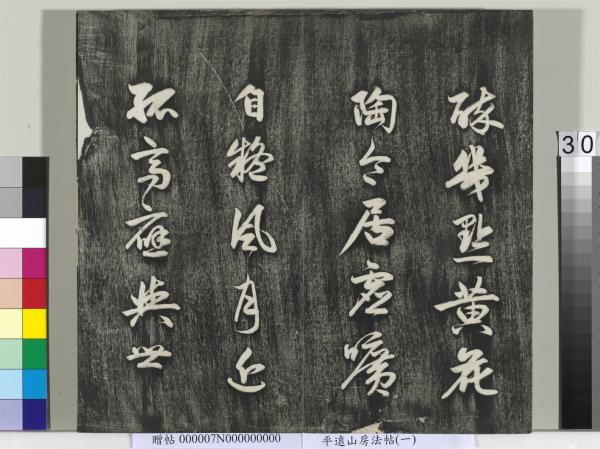 碎幾點黃花
陶令居虛曠
自凝風月近
孤高應與世
30
贈帖 000007N000000000
平遠山房法帖(一)